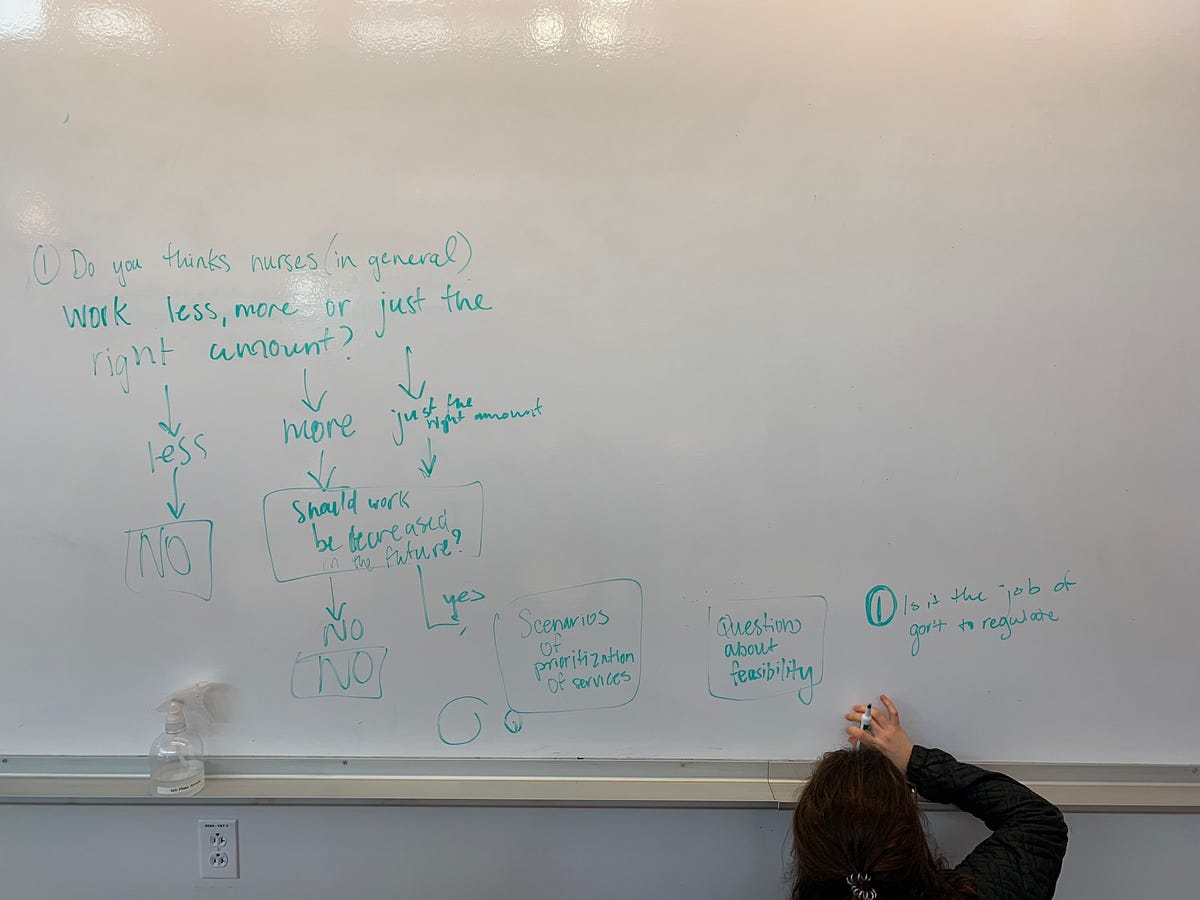 ① Do you thinks nurses (in general)
work less, more or just the
right amount?
less
more
just the
right amount
NO
Should work
be decreased
in the future?
yes
NO
NO
Scenarios
of
prioritization
of services
Questions
about
feasibility
① Is it the job of
gov't to regulate